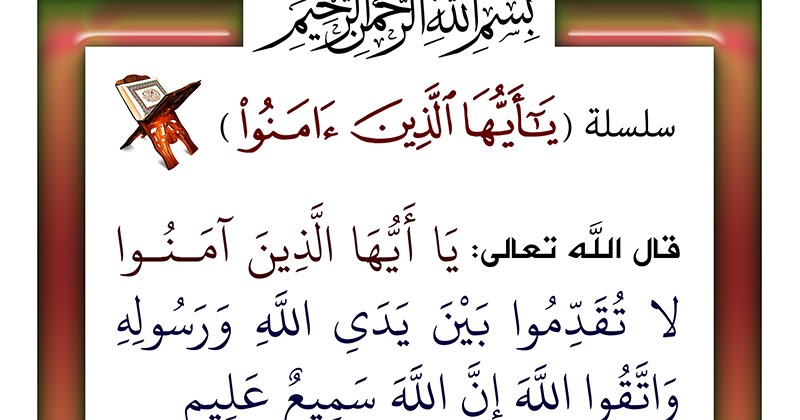 بِسْمِ اللَّهِ الرَّحْمَنِ الرَّحِيمِ
سلسلة (يَـٰٓأَيُّهَا ٱلَّذِينَ ءَامَنُوا۟)
قال اللَّه تعالى: يَا أَيُّهَا الَّذِينَ آمَـنُـوا
لا تُقَدِّمُوا بَيْنَ يَدَيِ اللَّهِ وَرَسُولِهِ
وَاتَّقُوا اللَّهَ إِنَّ اللَّهَ سَمِيعٌ عَلِيم